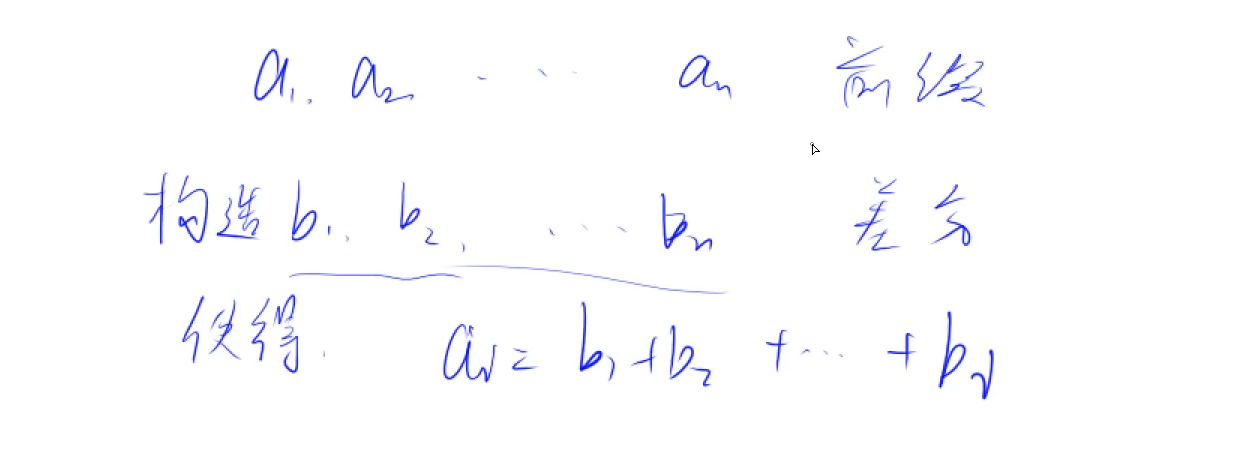 a₁, a₂ ..... aₙ 前缀
构造 b₁, b₂, ..... bₙ 差分
使得, aᵢ = b₁ + b₂ + ... + bᵢ